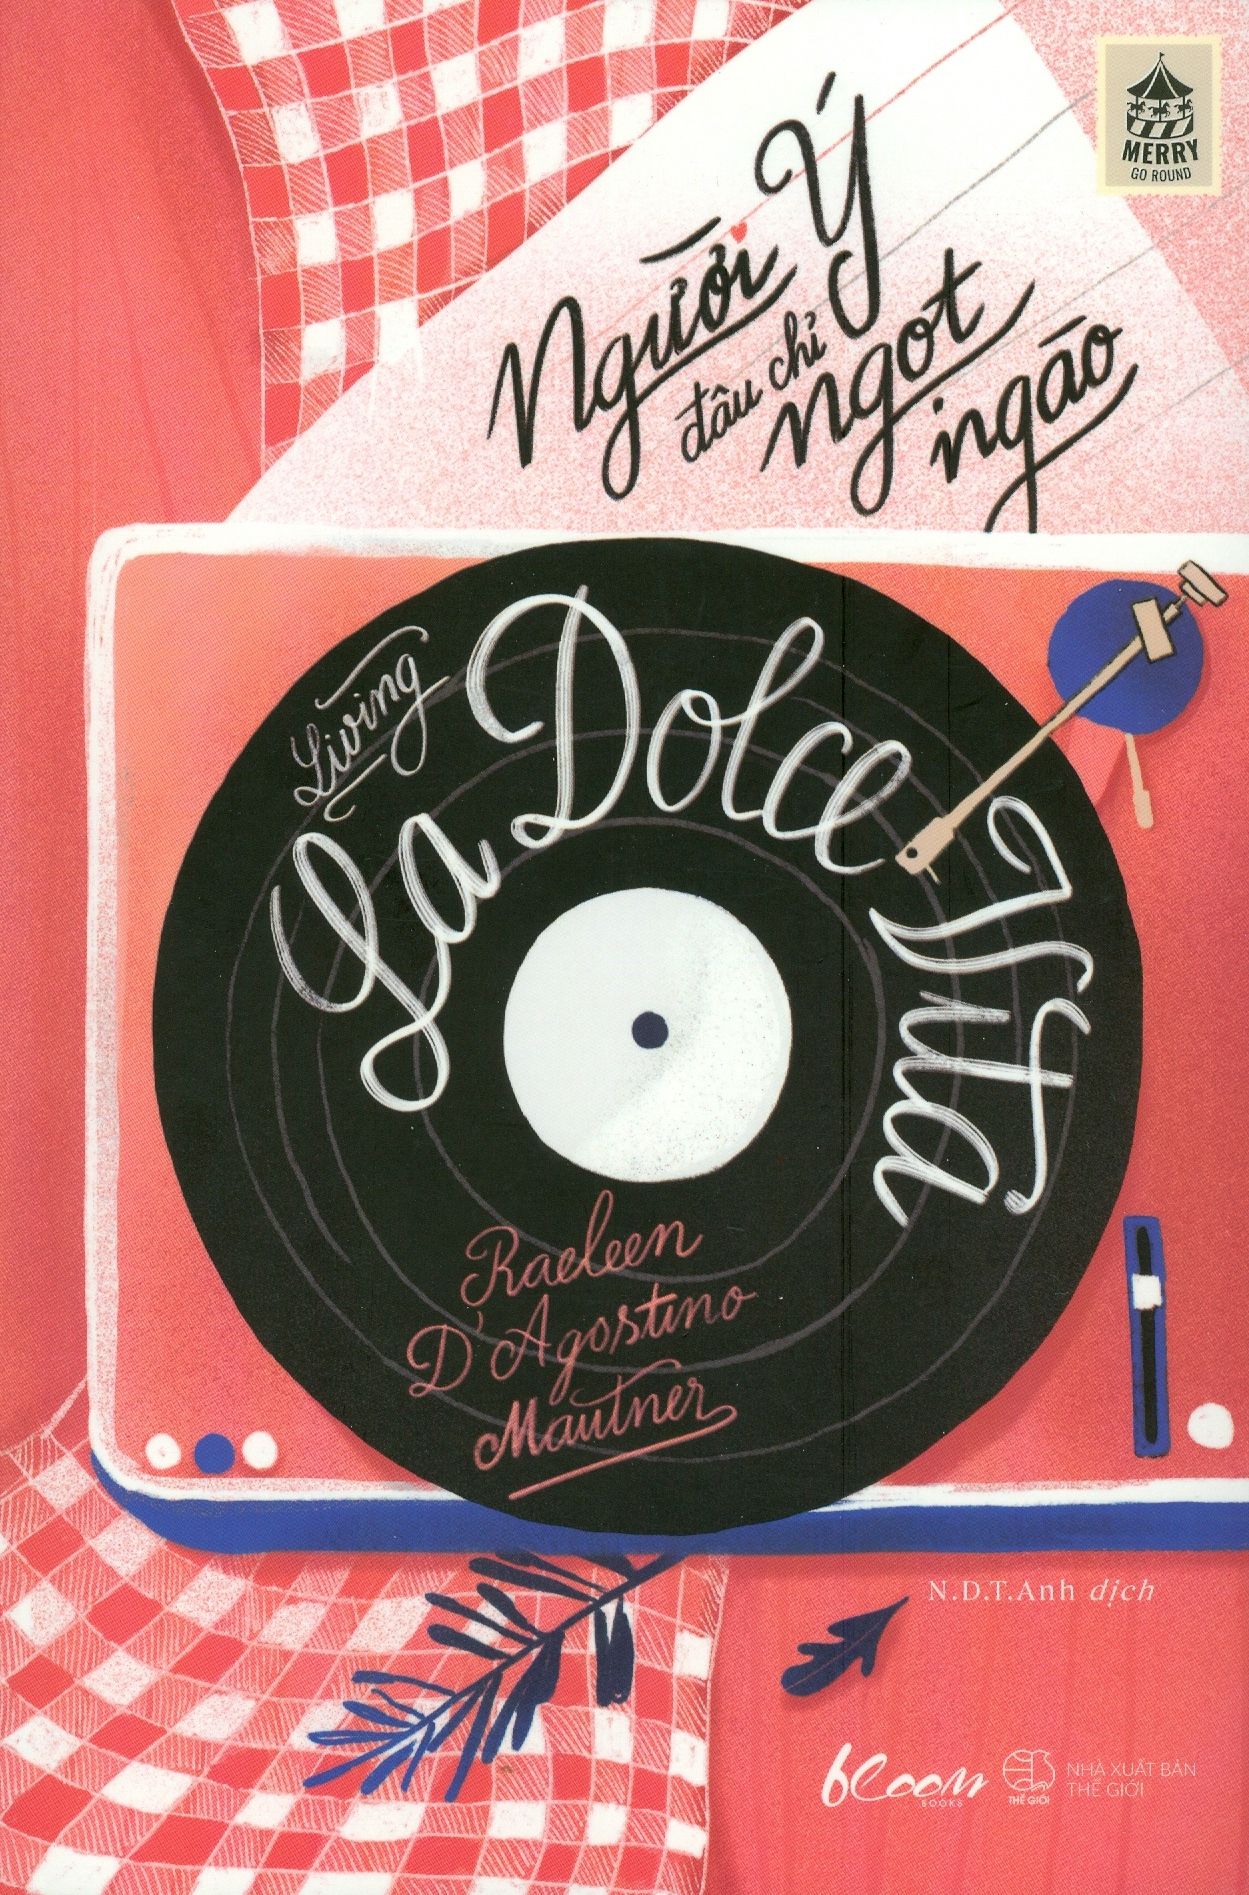 MERRY
GO ROUND
Người Ý
đâu chỉ
ngọt
ngào
Living
La Dolce Vita
Raeleen
D'Agostino
Mautner
N.D.T.Anh dịch
bloom
BOOKS
THẾ GIỚI
NHÀ XUẤT BẢN
THẾ GIỚI